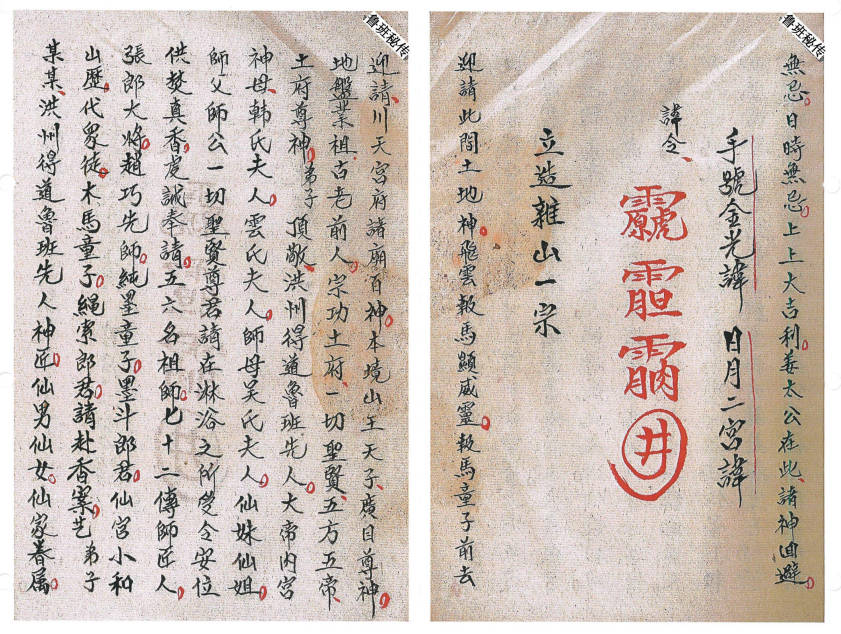 鲁班秘传
無忌日時無忌上上大吉利姜太公在此諸神回避
手號金光諱 日月二宮諱
諱令
井
立造雜山一宗
迎請此間土地神飛雲報馬顯威靈報馬童子前去
鲁班秘传
迎請川天宮府諸廟百神本境山王天子廣目尊神
地盤業祖古老前人宗功土府一切聖賢五方五帝
土府尊神弟子頂敬洪州得道魯班先人大帝內宮
神母韓氏夫人雲氏夫人師母吴氏夫人仙妹仙姐
師父師公一切聖賢尊君請在淋浴之所受令安位
供焚真香虔誠奉請五六名祖師七十二傳師匠人
張郎大將趙巧先師純墨童子墨斗郎君仙宮小和
山歷代眾徒木馬童子繩索郎君請赴香案乞弟子
某某洪州得道魯班先人神匠仙男仙女仙家眷属